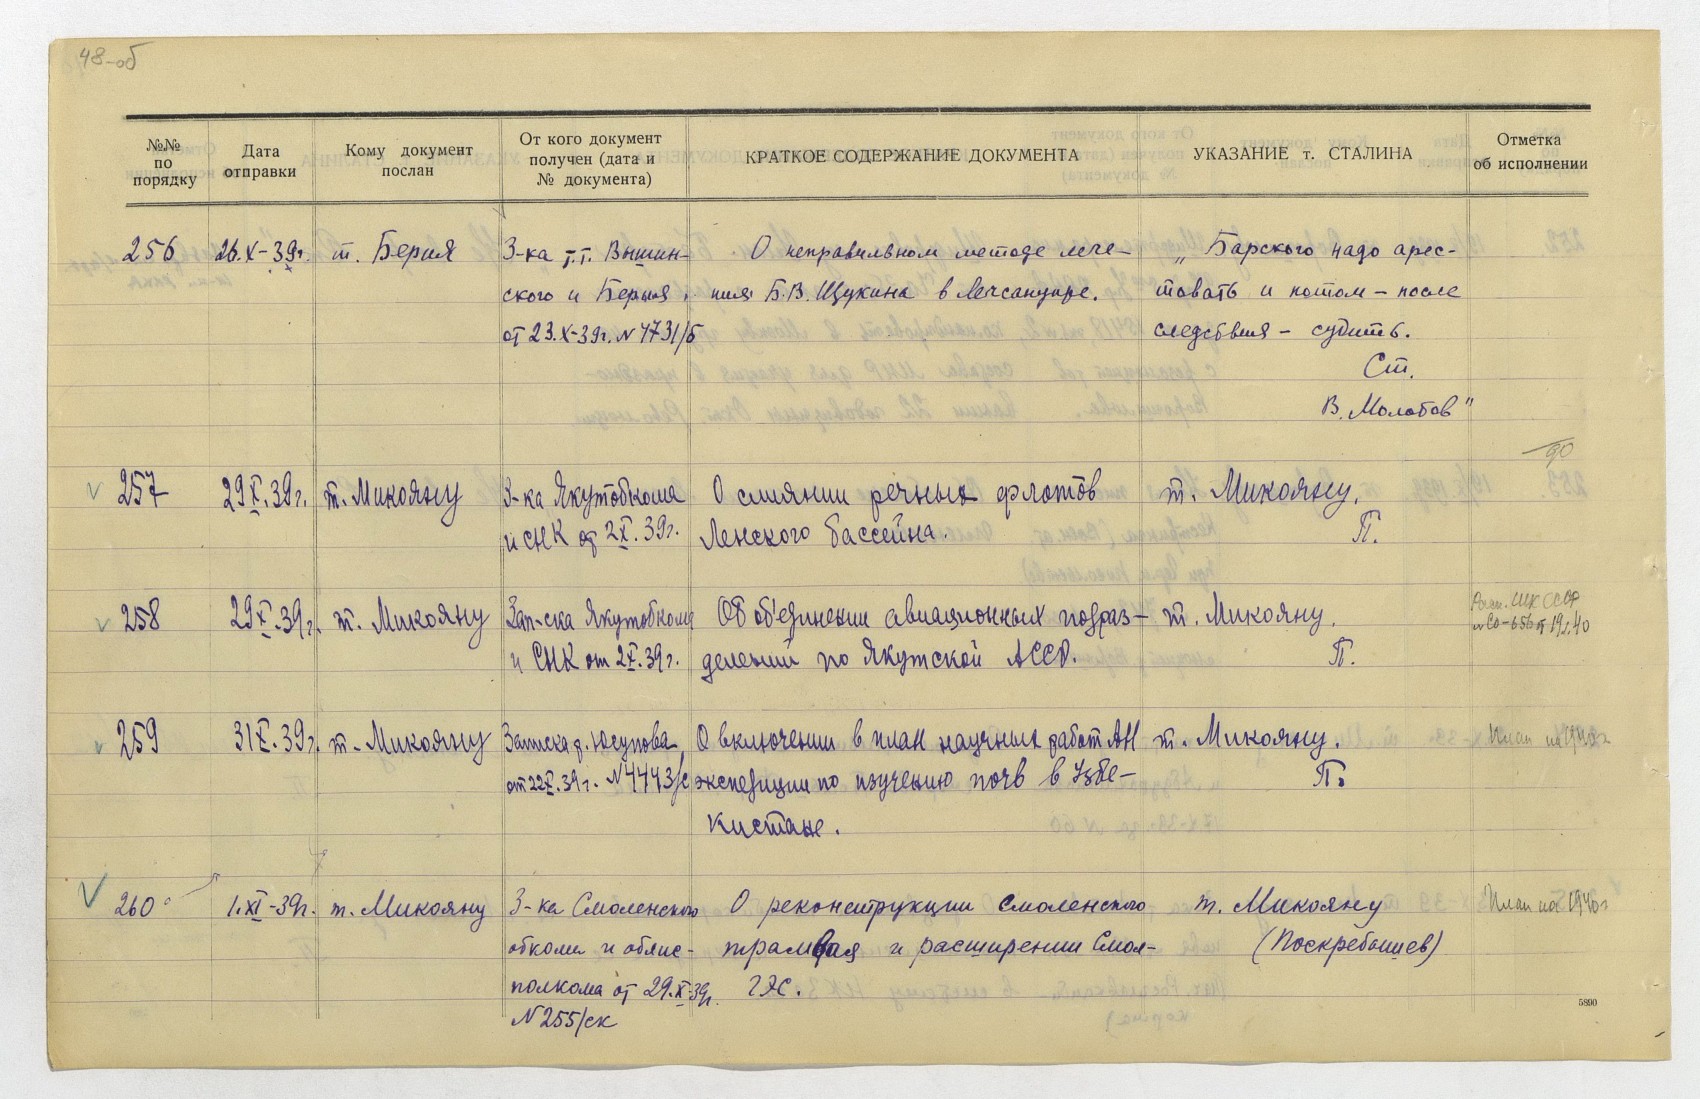 48-об
№№
по
порядку
Дата
отправки
Кому документ
послан
От кого документ
получен (дата и
№ документа)
КРАТКОЕ СОДЕРЖАНИЕ ДОКУМЕНТА
УКАЗАНИЕ т. СТАЛИНА
Отметка
об исполнении
256
26.X-39г.
т. Берия
З-ка т.т. Вышин-
ского и Берия
от 23.X-39г. N 4731/б
О неправильном методе лече-
ния Б.В. Щукина в Лечсанупре.
„Барского надо арес-
товать и потом – после
следствия – судить.
Ст.
В. Молотов"
257
29X.39г.
т. Микояну
З-ка Якутобкома
и СНК от 2X.39г.
О слиянии речных флотов
Ленского бассейна.
т. Микояну.
П.
90
258
29X.39г.
т. Микояну
Зап-ска Якутобкома
и СНК от 2X.39г.
Об об'единении авиационных подраз-
делений по Якутской АССР.
т. Микояну.
П.
СССР
от 19.40
259
31X.39г.
т. Микояну
Записка т. Юсупова
от 22X.39г. N 4443/с
О включении в план научных работ АН
экспедиции по изучению почв в Узбе-
кистане.
т. Микояну.
П.
План на 1940г
260
1.XI-39г.
т. Микояну
З-ка Смоленского
обкома и облис-
полкома от 29.X-39г.
N 255/ск
О реконструкции Смоленского
трамвая и расширении Смол-
ГЭС.
т. Микояну
(Поскребышев)
План на 1940г
5890